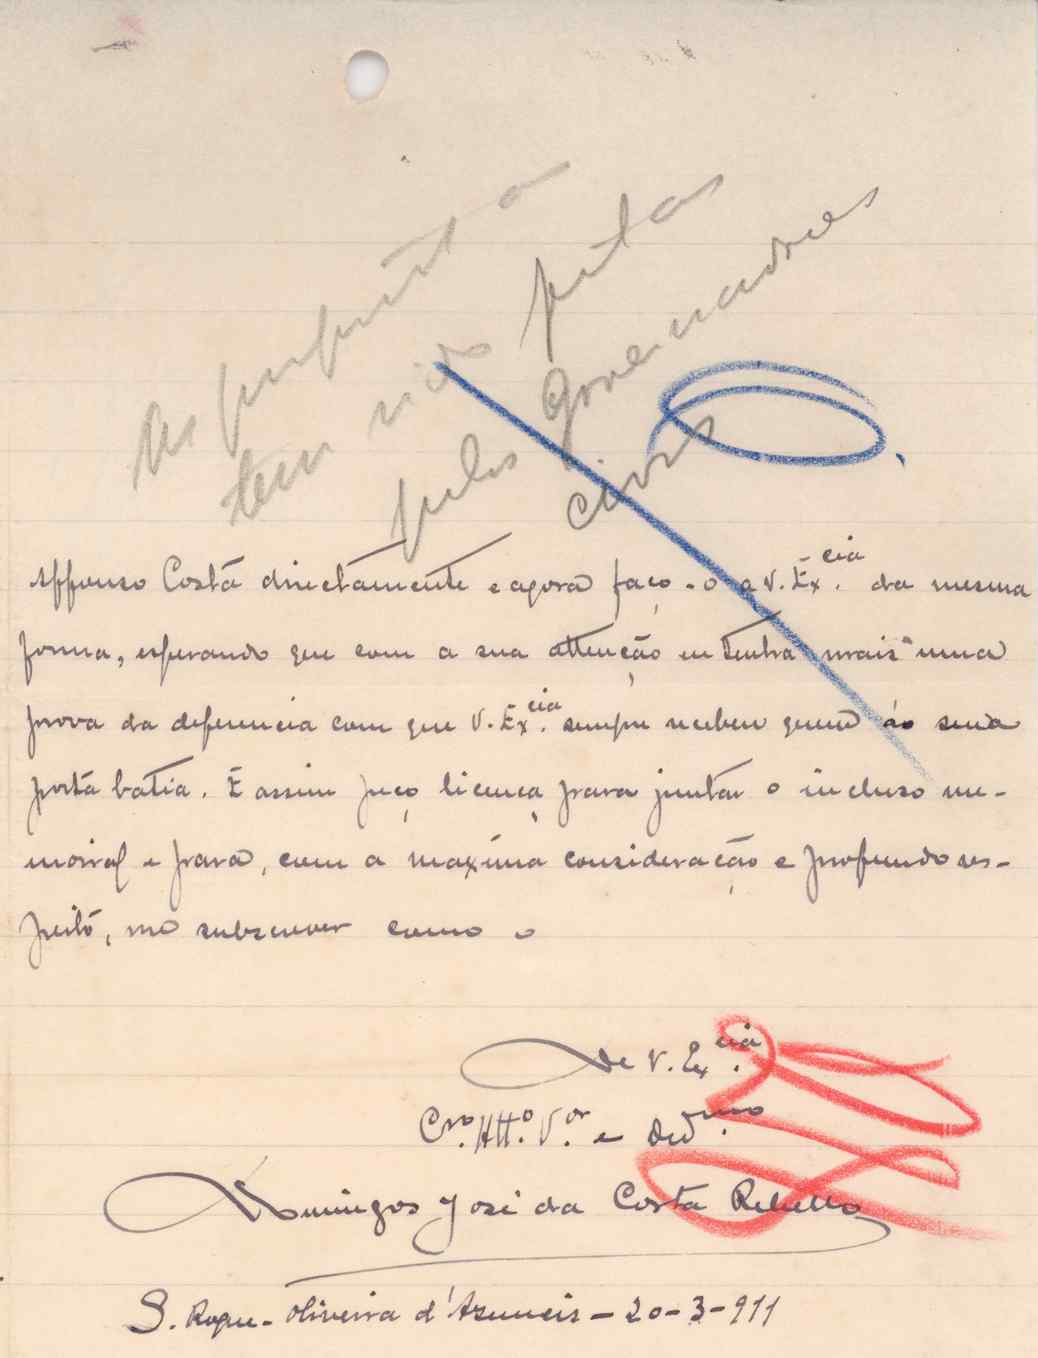 As propostas
tem sido feitas
pelos Governadores
civis
Affonso Costa directamente e agora faço-o a V. Ex.cia da mesma
forma, esperando que com a sua attenção eu tenha mais uma
prova da deferencia com que V. Ex.cia sempre recebeu quem á sua
porta batia. E assim peço licença para juntar o incluso me-
morial e para, com a maxima consideração e profundo res-
peito, me subscrever como o
De V. Ex.cia
Cr.o Att.o V.or e Ded.mo
Domingos José da Costa Rebello
S. Roque - Oliveira d'Azemeis - 20-3-911